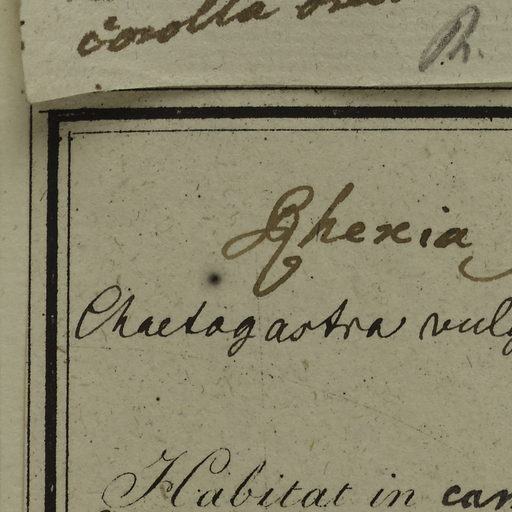 corolla
R.
Rhexia
Chaetogastra vulg
Habitat in cam